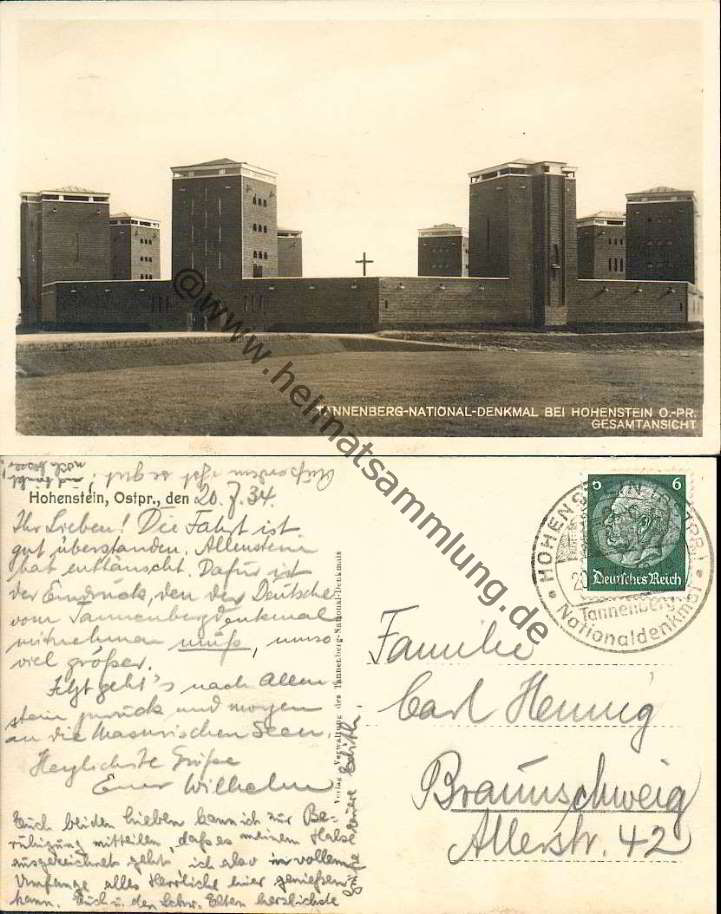 TANNENBERG-NATIONAL-DENKMAL BEI HOHENSTEIN O.-PR.
GESAMTANSICHT
@www.heimatsammlung.de
Hohenstein, Ostpr., den 20.7.34.
Ihr Lieben! Die Fahrt ist
gut überstanden. Allenstein
hat enttäuscht. Dafür ist
der Eindruck, den der Deutsche
vom Tannenbergdenkmal
mitnehmen muß, umso
viel größer.
Jetzt geht's nach Allen
stein zurück und morgen
an die Masurischen Seen.
Herzlichste Grüße
Euer Wilhelm
Euch beiden Lieben kann ich zur Be-
ruhigung mitteilen, daß es meinem Halse
ausgezeichnet geht, ich also in vollem
Umfange alles Herrliche hier genießen
kann. Euch u. den Schw. Eltern herzlichste
Eure Edith.
Verlag: Verwaltung des Tannenberg-National-Denkmals
HOHENSTEIN (OSTPR)
Tannenberg
Nationaldenkmal
6 6
Deutsches Reich
Familie
Carl Hennig
Braunschweig
Allerstr. 42